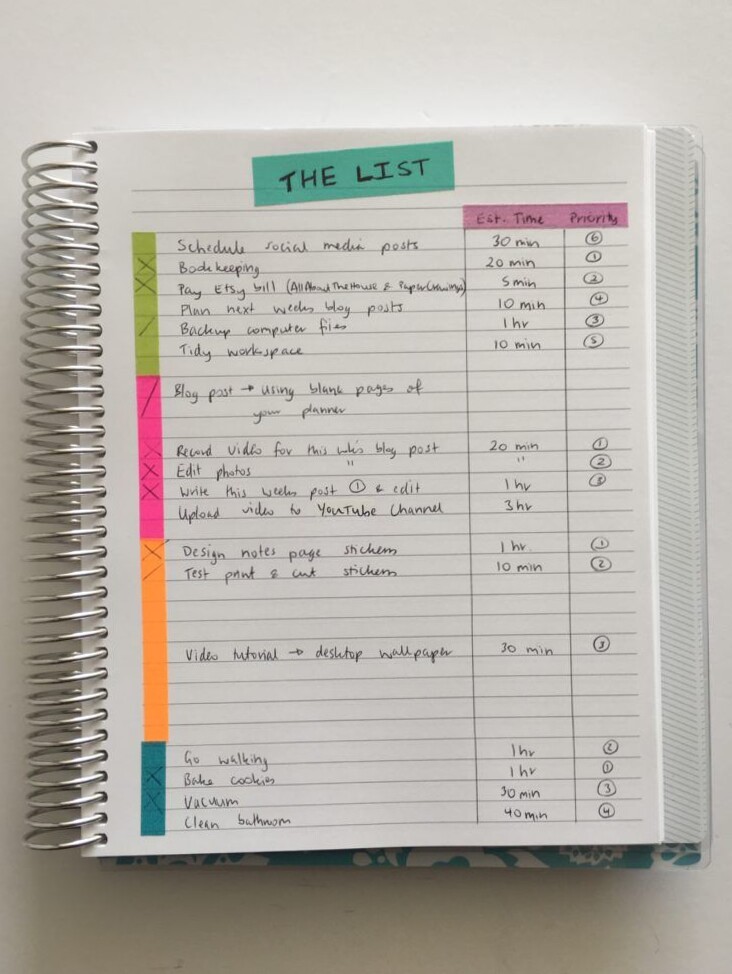 THE LIST
Est. Time Priority
Schedule social media posts 30 min 6
Bookkeeping 20 min 1
Pay Etsy bill (AllAboutTheHouse & PaperCravings) 5 min 2
Plan next weeks blog posts 10 min 4
Backup computer files 1 hr 3
Tidy workspace 10 min 5
Blog post → using blank pages of
your planner
Record video for this wk's blog post 20 min 1
Edit photos " " 2
Write this weeks post ① & edit 1 hr 3
Upload video to YouTube Channel 3 hr
Design notes page stickers 1 hr 1
Test print & cut stickers 10 min 2
Video tutorial → desktop wallpaper 30 min 3
Go walking 1 hr 2
Bake cookies 1 hr 1
Vacuum 30 min 3
Clean bathroom 40 min 4